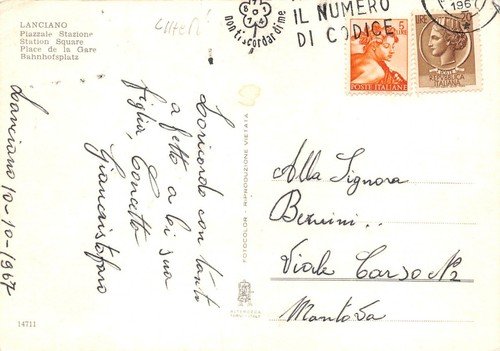 LANCIANO
Piazzale Stazione
Station Square
Place de la Gare
Bahnhofsplatz
non ti scordar di me
IL NUMERO
DI CODICE
196
5
LIRE
POSTE ITALIANE
LIRE
20
REPUBBLICA
ITALIANA
Lanciano 10-10-1967
La ricordo con tanti
affetto a lei sua
figlia, Concetta
FOTOCOLOR - RIPRODUZIONE VIETATA
Alla Signora
Bernini..
Viale Carso N2
Mantova
14711